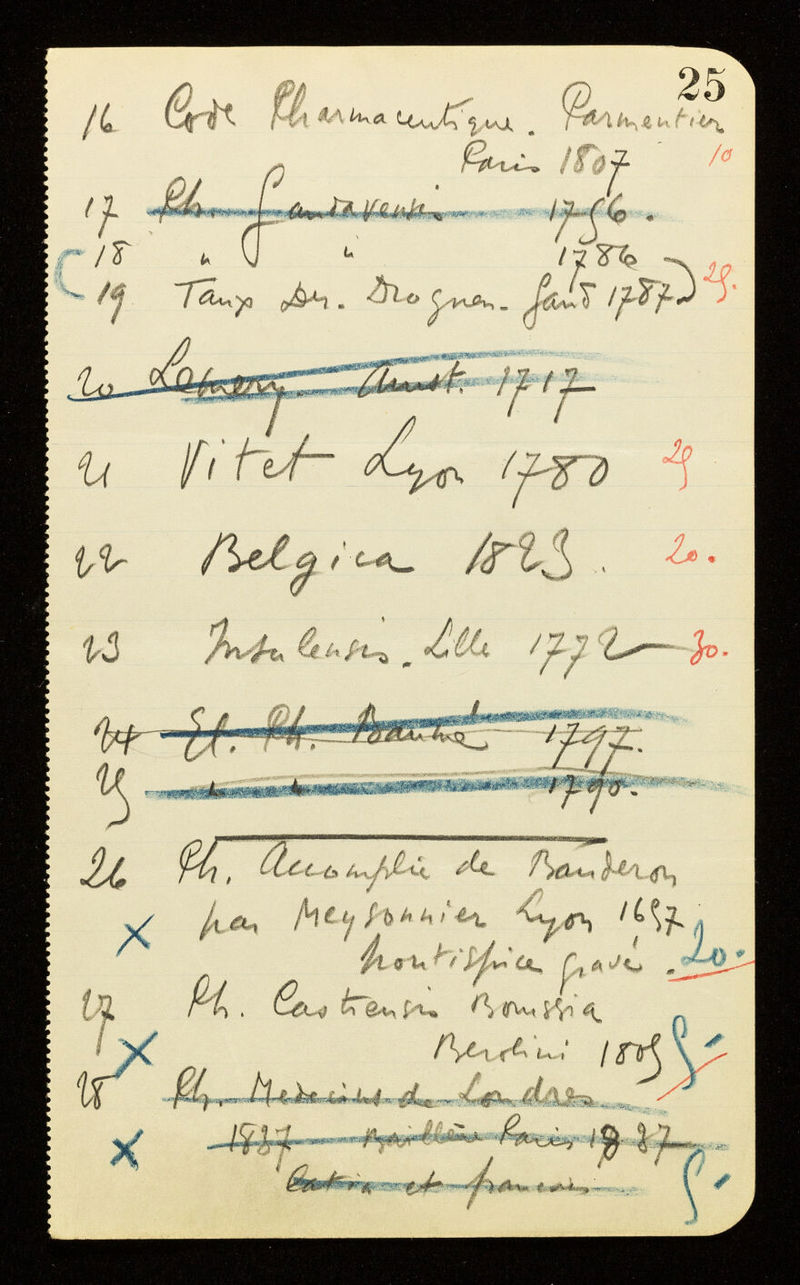 25
16 Code Pharmaceutique. Parmentier
Paris 1807 10
17 Ph. Gandavensis 1756.
18 " " 1786
19 Taux des Drogues. Gand 1787. 25.
20 Lemery. Amst. 1717
21 Vitet Lyon 1780 25
22 Belgica 1823. 20.
23 Insulensis. Lille 1772 30.
24 El. Ph. Baumé 1797.
25 " " 1790.
26 Ph. Accomplie de Bauderon
par Meysonnier Lyon 1657
frontispice gravé. 20.
27 Ph. Castrensis Borussia
X Berolini 1805 5-
28 Ph. Medecins de Londres
X 1837 Baillère Paris 1837
latin et francais 5-